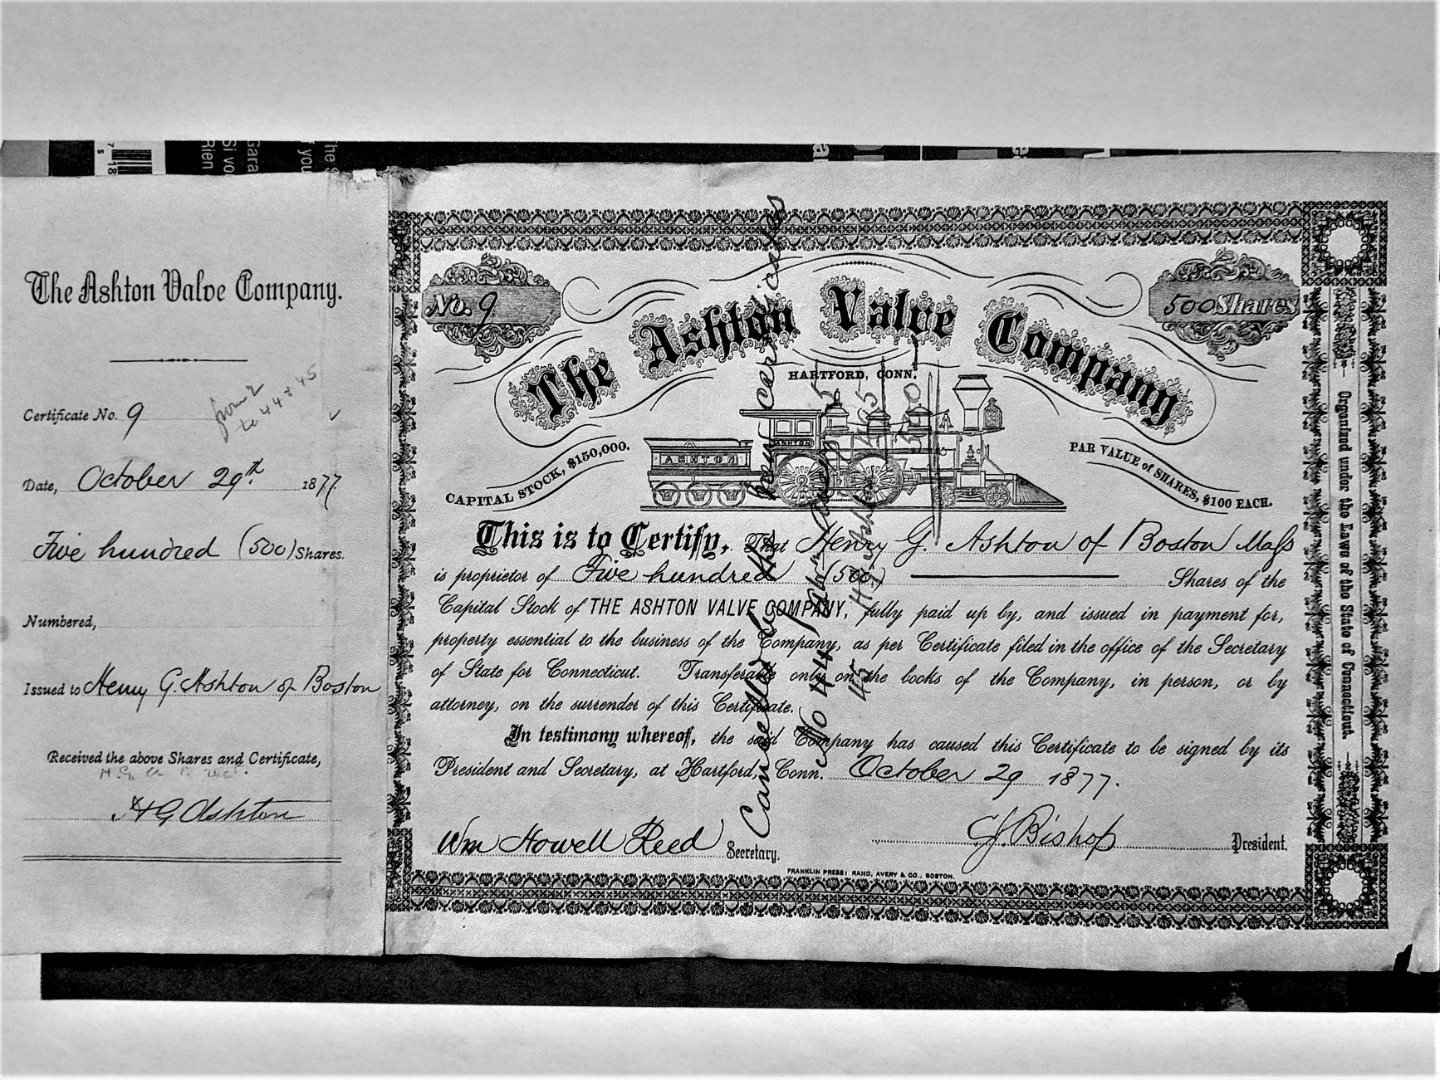 The Ashton Valve Company.
from 2
to 44 & 45
Certificate No. 9
Date, October 29th 1877
Five hundred (500) Shares.
Numbered,
Issued to Henry G. Ashton of Boston
Received the above Shares and Certificate,
H G Ashton
No. 9
500 Shares
The Ashton Valve Company
HARTFORD, CONN.
ASHTON
ASHTON
CAPITAL STOCK, $150,000.
PAR VALUE OF SHARES, $100 EACH.
This is to Certify, That Henry G. Ashton of Boston Mass
is proprietor of Five hundred (500) Shares of the
Capital Stock of THE ASHTON VALVE COMPANY, fully paid up by, and issued in payment for,
property essential to the business of the Company, as per Certificate filed in the office of the Secretary
of State for Connecticut. Transferable only on the books of the Company, in person, or by
attorney, on the surrender of this Certificate.
In testimony whereof, the said Company has caused this Certificate to be signed by its
President and Secretary, at Hartford, Conn. October 29 1877.
Wm Howell Reed Secretary.
C J. Bishop President.
FRANKLIN PRESS: RAND, AVERY & CO., BOSTON.
Organized under the Laws of the State of Connecticut.
Cancelled by new certificates
No 44
45